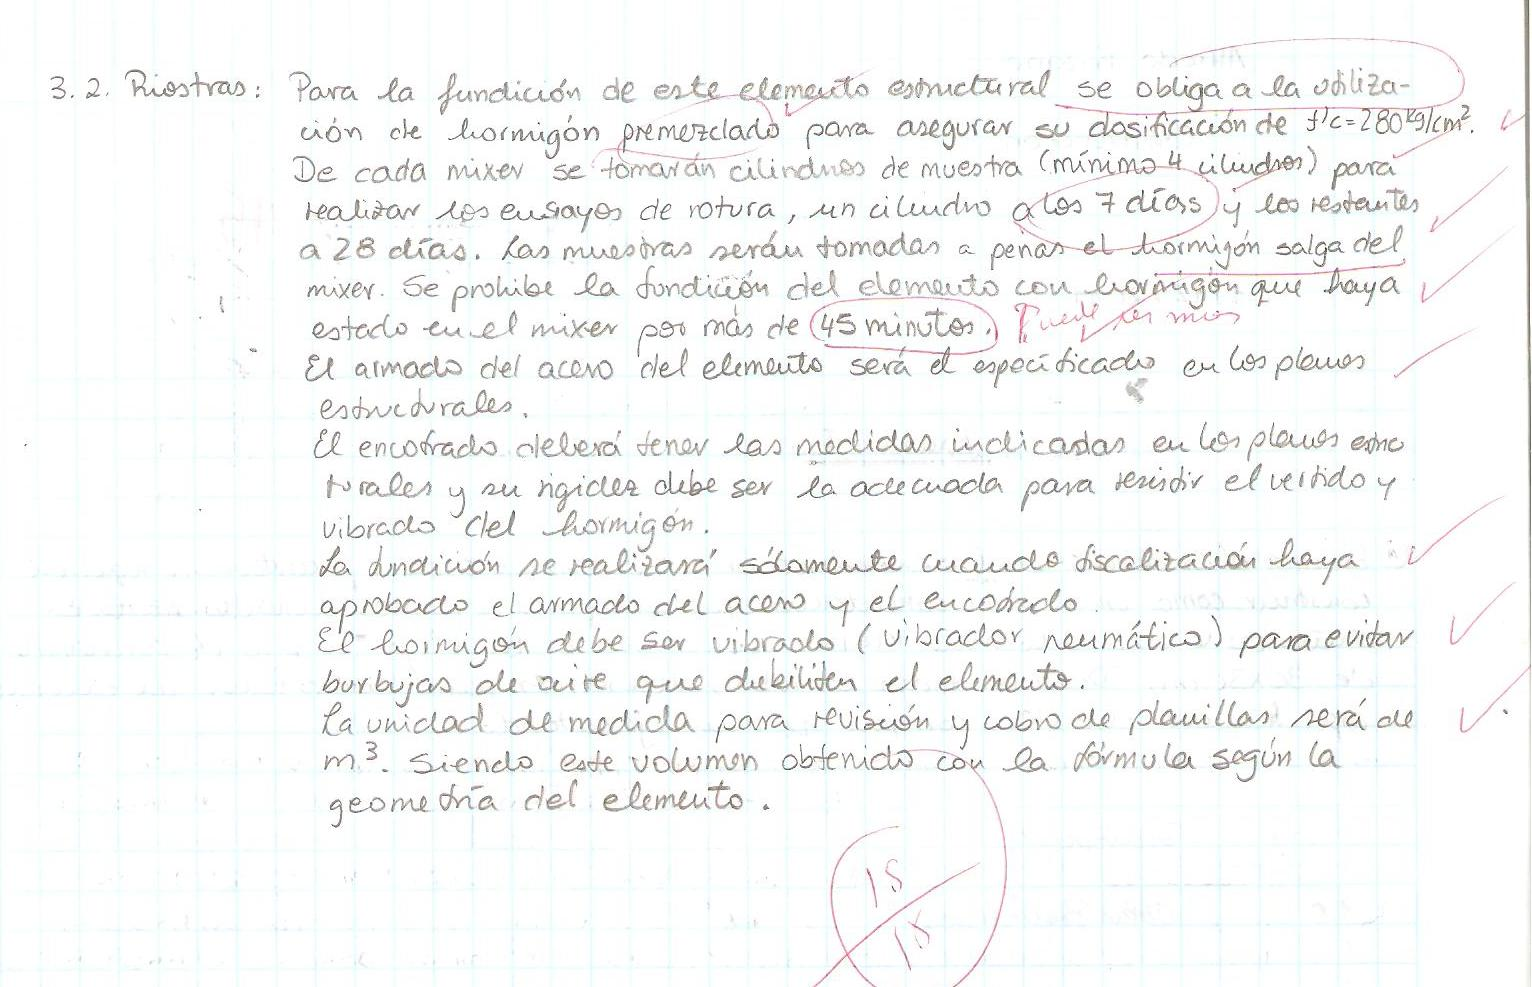 3.2. Riostras: Para la fundición de este elemento estructural se obliga a la utiliza-
ción de hormigón premezclado para asegurar su dosificación de f'c=280kg/cm².
De cada mixer se tomarán cilindros de muestra (mínimo 4 cilindros) para
realizar los ensayos de rotura, un cilindro a los 7 días y los restantes
a 28 días. Las muestras serán tomadas a penas el hormigón salga del
mixer. Se prohibe la fundición del elemento con hormigón que haya
estado en el mixer por más de 45 minutos. Puede ser más
El armado del acero del elemento será el especificado en los planos
estructurales.
El encofrado deberá tener las medidas indicadas en los planos estruc
turales y su rigidez debe ser la adecuada para resistir el vertido y
vibrado del hormigón.
La fundición se realizará sólamente cuando fiscalización haya
aprobado el armado del acero y el encofrado.
El hormigón debe ser vibrado (vibrador neumático) para evitar
burbujas de aire que debiliten el elemento.
La unidad de medida para revisión y cobro de planillas será de
m³. Siendo este volumen obtenido con la fórmula según la
geometría del elemento.
15